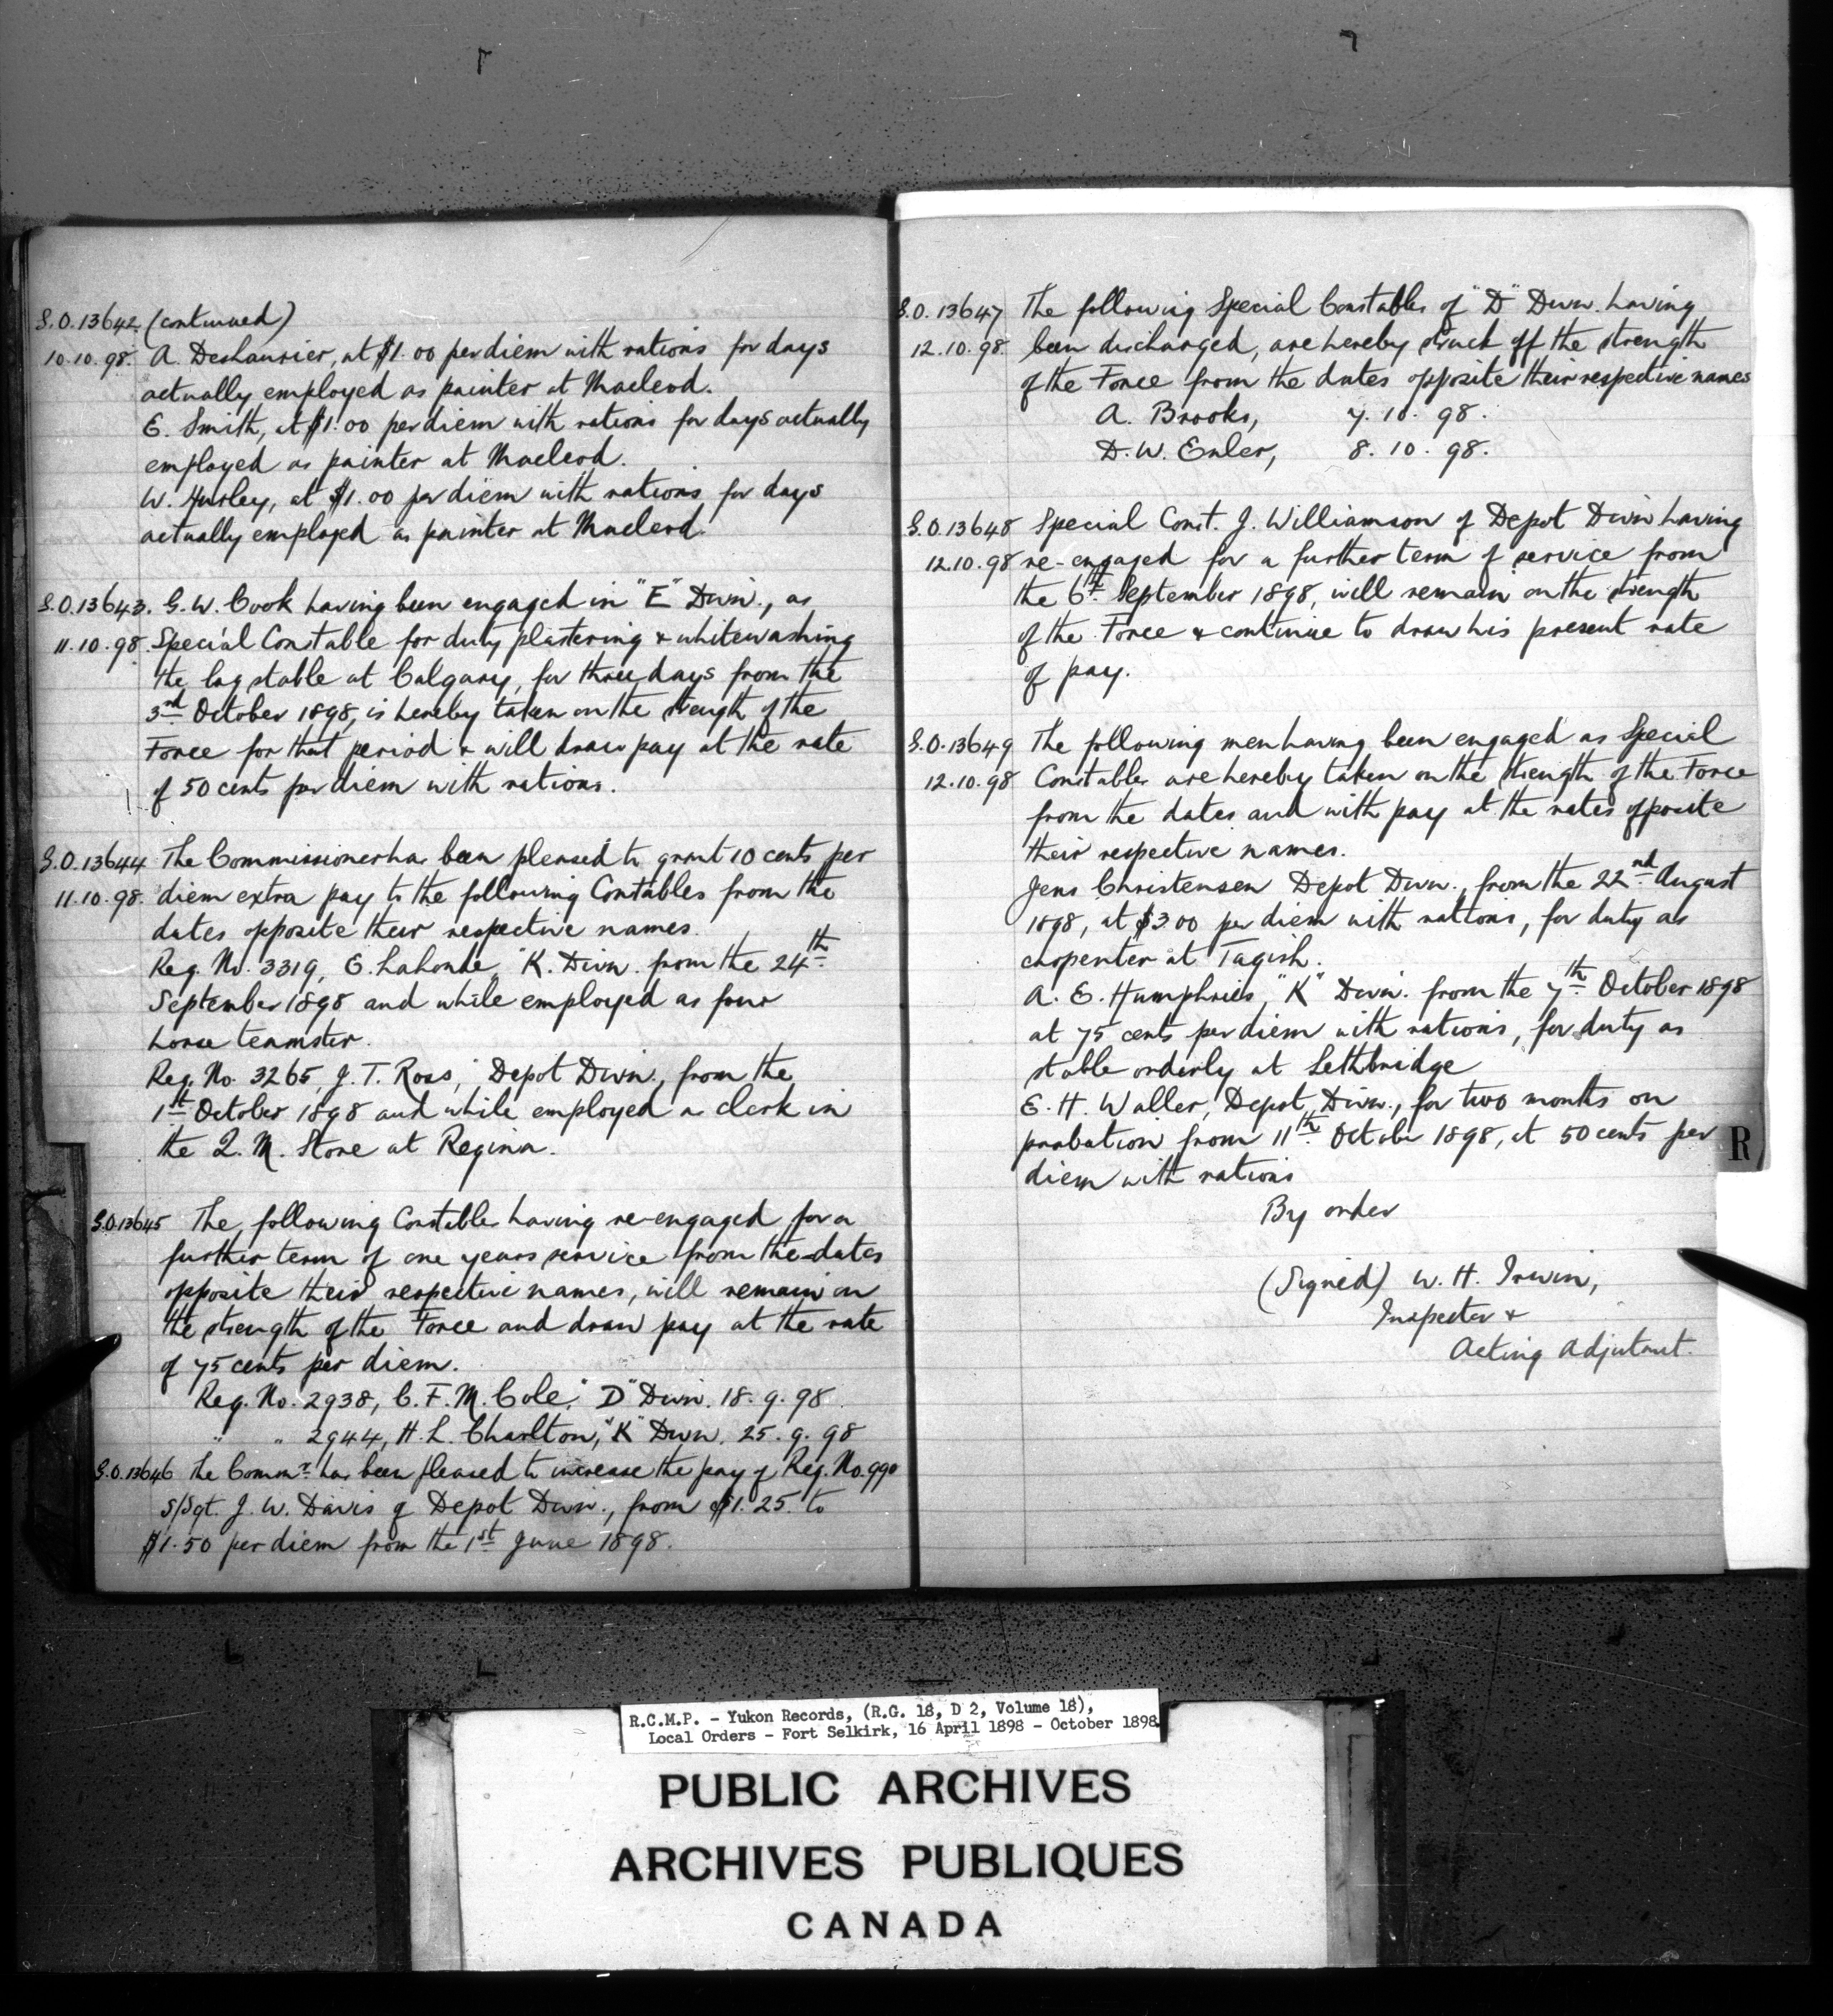 G.O. 13642 (continued)
10.10.98. A. Deslaurier, at $1.00 per diem with rations for days
actually employed as painter at Macleod.
E. Smith, at $1.00 per diem with rations for days actually
employed as painter at Macleod.
W. Hurley, at $1.00 per diem with rations for days
actually employed as painter at Macleod.
G.O. 13643. G. W. Cook having been engaged in "E" Divn., as
11.10.98 Special Constable for duty plastering & whitewashing
the log stable at Calgary, for three days from the
3rd October 1898, is hereby taken on the strength of the
Force for that period & will draw pay at the rate
of 50 cents per diem with rations.
G.O. 13644 The Commissioner has been pleased to grant 10 cents per
11.10.98. diem extra pay to the following Constables from the
dates opposite their respective names.
Reg. No. 3319, E. Lalonde, "K. Divn. from the 24th
September 1898 and while employed as four
horse teamster.
Reg. No. 3265, J. T. Ross, Depot Divn., from the
1st October 1898 and while employed as clerk in
the Q. M. Store at Regina.
G.O. 13645 The following Constables having re-engaged for a
further term of one years service from the dates
opposite their respective names, will remain on
the strength of the Force and draw pay at the rate
of 75 cents per diem.
Reg. No. 2938, C. F. M. Cole, "D" Divn. 18.9.98
" " 2944, H. L. Charlton, "K" Divn. 25.9.98
G.O. 13646 The Commr. has been pleased to increase the pay of Reg. No. 990
S/Sgt. J. W. Davis of Depot Divn., from $1.25 to
$1.50 per diem from the 1st June 1898.
G.O. 13647 The following Special Constables of "D" Divn. having
12.10.98. been discharged, are hereby struck off the strength
of the Force from the dates opposite their respective names
A. Brooks, 7.10.98.
D. W. Enler, 8.10.98.
G.O. 13648 Special Const. J. Williamson of Depot Divn having
12.10.98 re-engaged for a further term of service from
the 6th September 1898, will remain on the strength
of the Force & continue to draw his present rate
of pay.
G.O. 13649 The following men having been engaged as Special
12.10.98 Constables are hereby taken on the strength of the Force
from the dates and with pay at the rates opposite
their respective names.
Jens Christensen Depot Divn., from the 22nd August
1898, at $3.00 per diem with rations, for duty as
carpenter at Tagish.
A. E. Humphries, "K" Divn. from the 7th October 1898
at 75 cents per diem with rations, for duty as
stable orderly at Lethbridge
E. H. Waller, Depot Divn., for two months on
probation from 11th October 1898, at 50 cents per
diem with rations
By order
(Signed) W. H. Irwin,
Inspector &
Acting Adjutant.
R
R.C.M.P. - Yukon Records, (R.G. 18, D 2, Volume 18),
Local Orders - Fort Selkirk, 16 April 1898 - October 1898.
PUBLIC ARCHIVES
ARCHIVES PUBLIQUES
CANADA